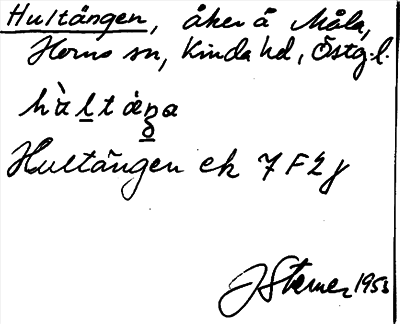 Hultängen, åker å Måla,
Horns sn, Kinda hd, Östg. l.
Hultängen ek 7 F 2 j
J Sterner 1953